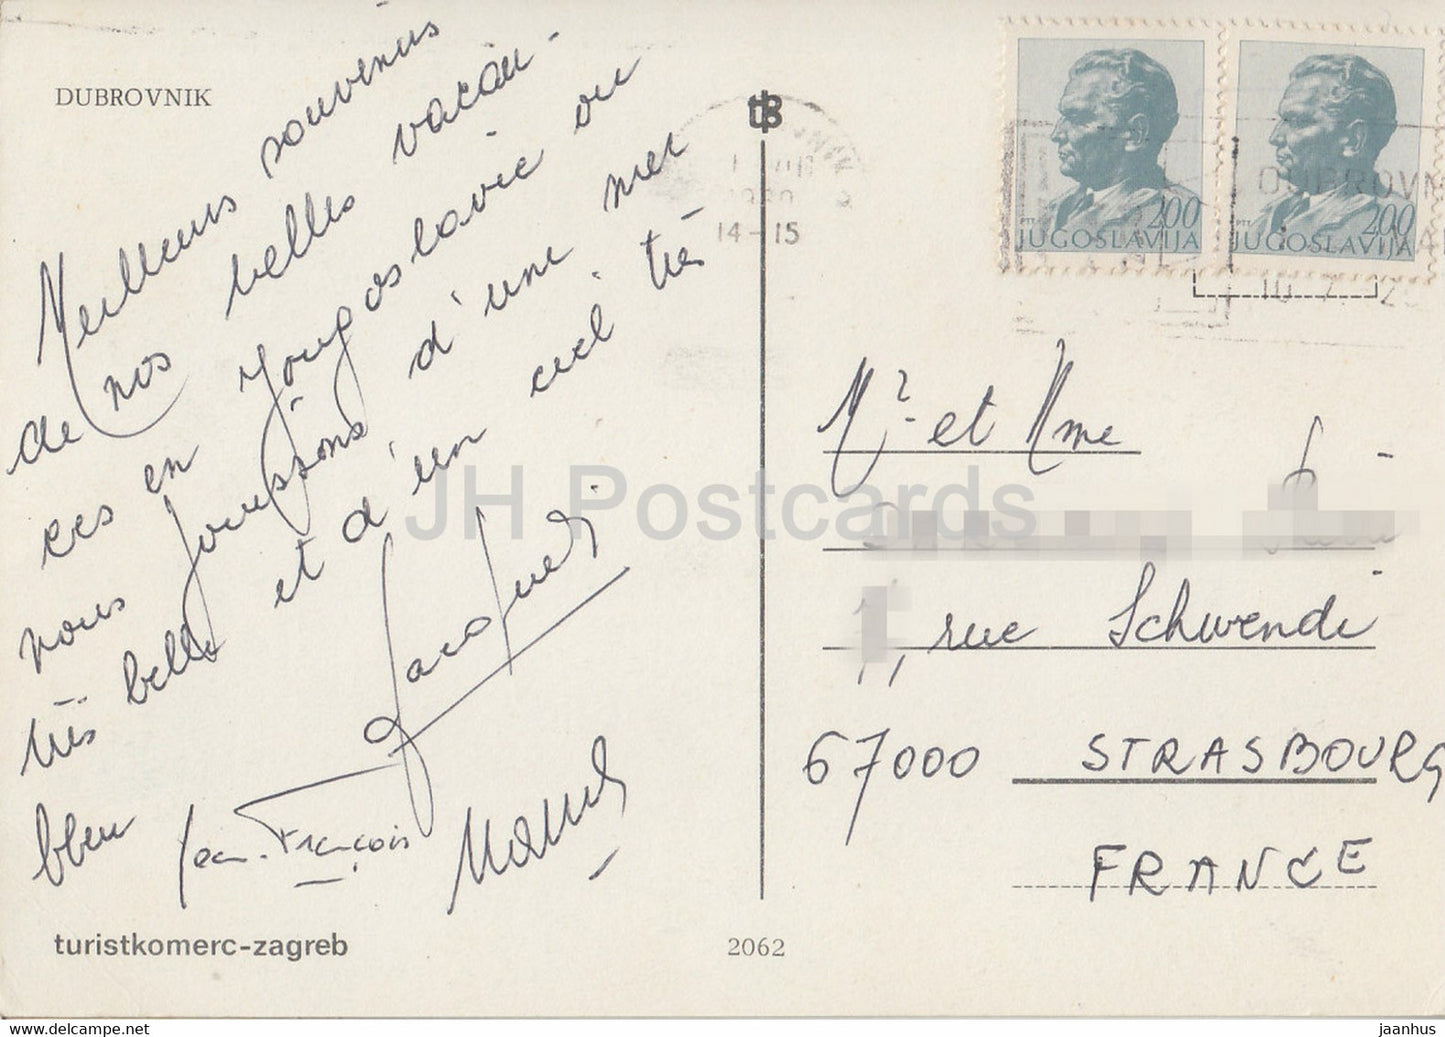 DUBROVNIK
Meilleurs souvenirs
de nos belles vacan-
ces en Yougoslavie ou
nous jouissons d'une mer
très belle et d'un ciel très
bleu
Jacques
Jean-François
tB
14-15
JUGOSLAVIJA
200
PTT
JUGOSLAVIJA
200
PTT
DUBROVN
Mr et Mme
rue Schwendi
67000 STRASBOURG
FRANCE
turistkomerc-zagreb
2062
JH Postcards
www.delcampe.net
jaanhus